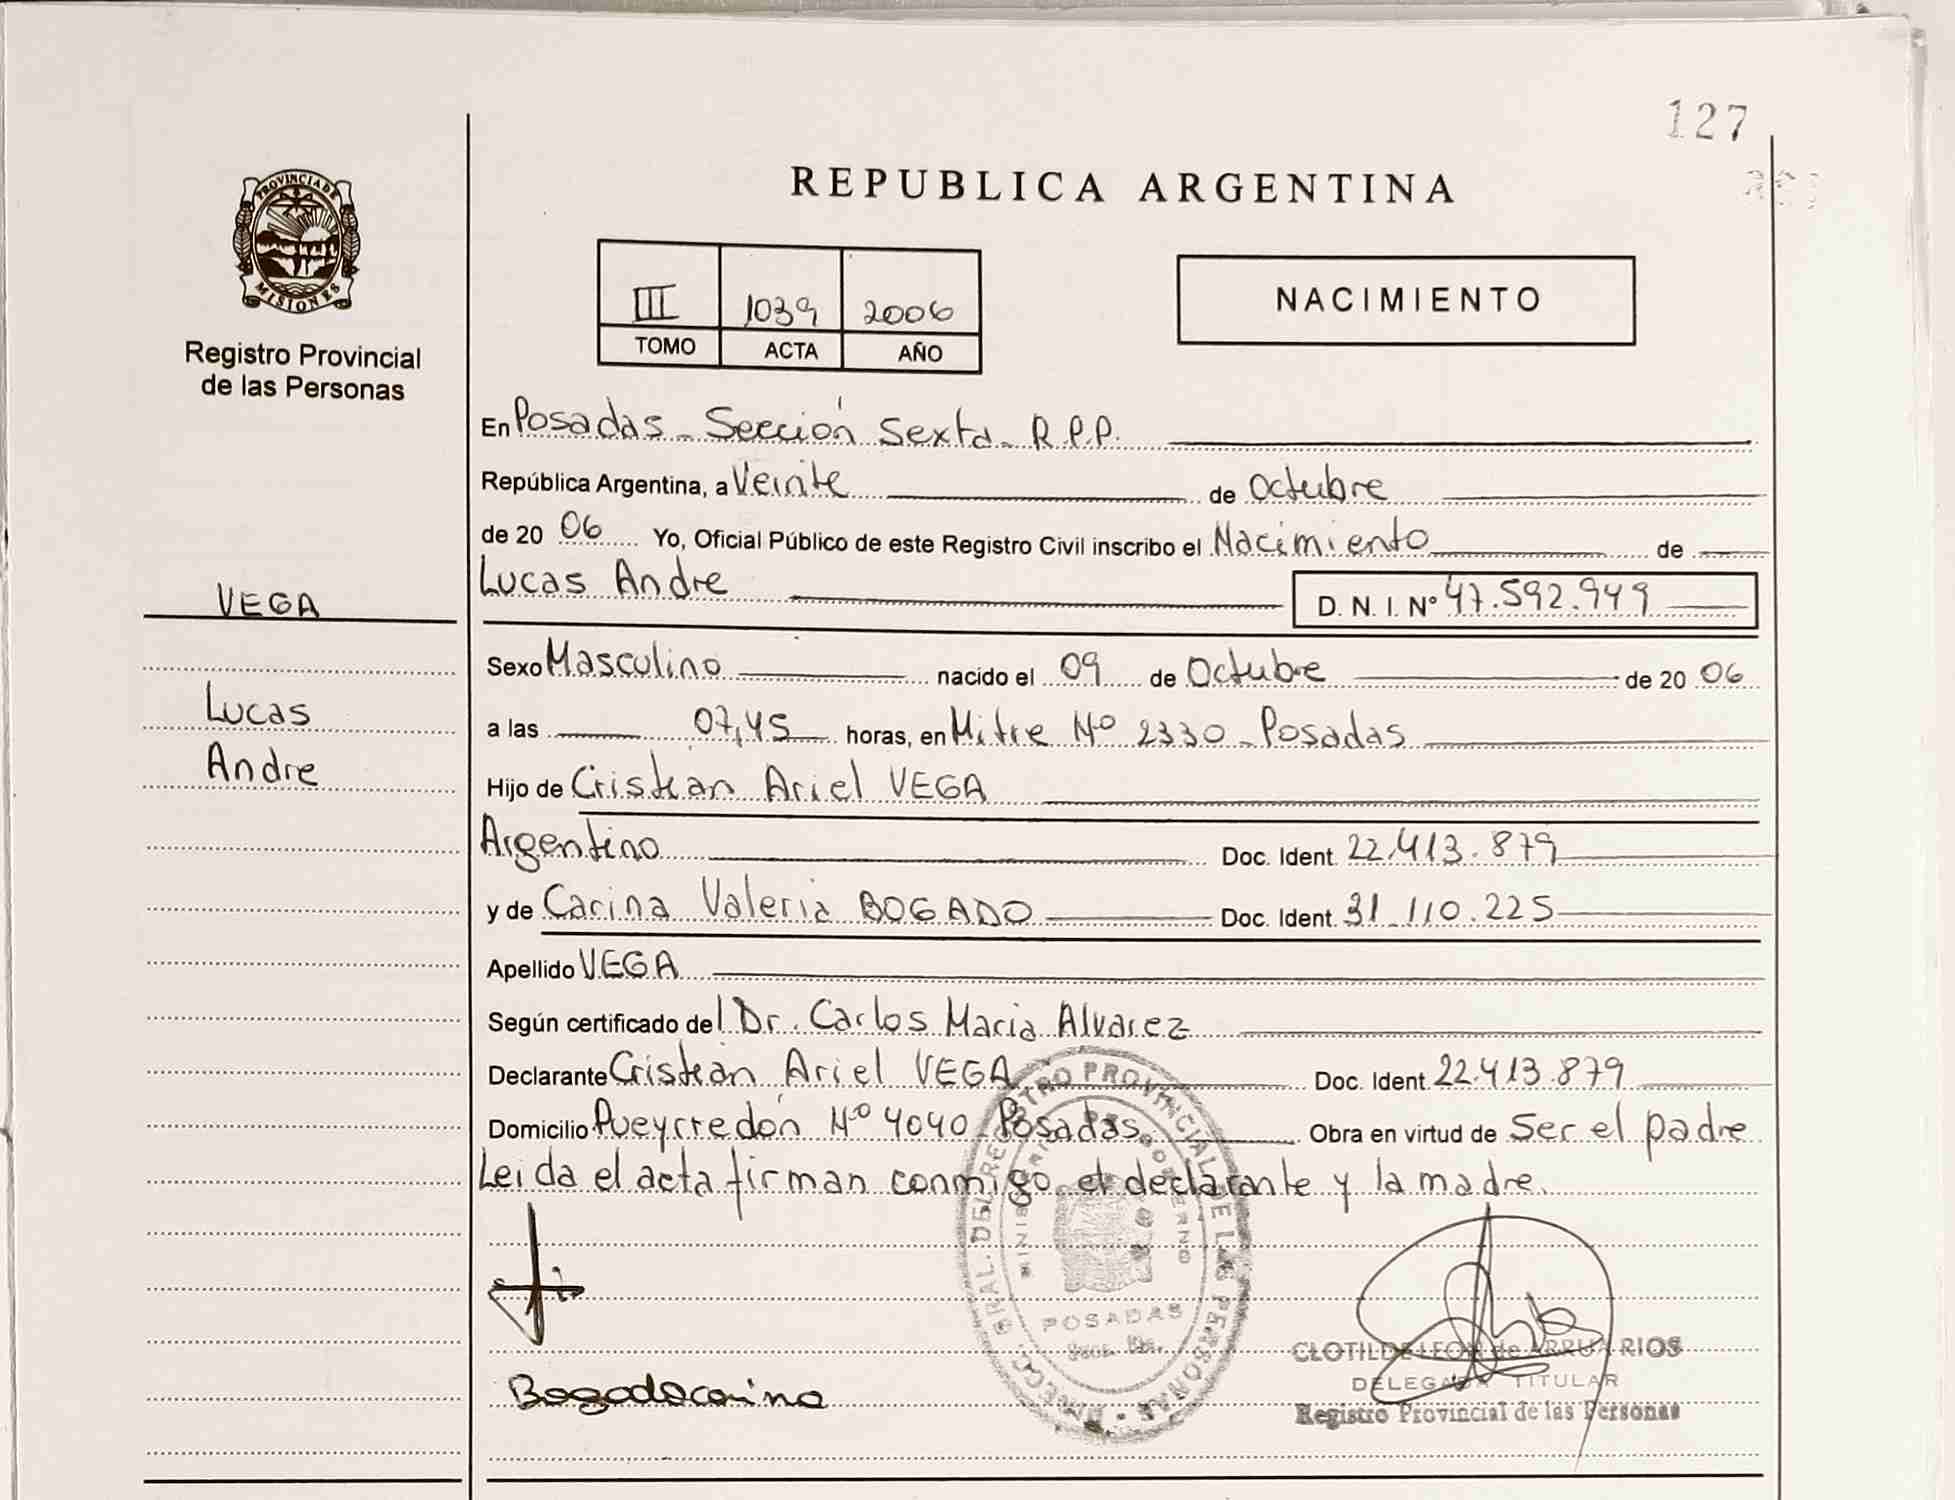 127
REPUBLICA ARGENTINA
PROVINCIA DE MISIONES
Registro Provincial
de las Personas
III 1039 2006
TOMO ACTA AÑO
NACIMIENTO
En Posadas - Sección Sexta - R.P.P.
República Argentina, a Veinte de Octubre
de 20 06 Yo, Oficial Público de este Registro Civil inscribo el Nacimiento de
VEGA
Lucas Andre D. N. I. Nº 47.592.949
Sexo Masculino nacido el 09 de Octubre de 20 06
Lucas
a las 07,45 horas, en Mitre Nº 2330 - Posadas
Andre
Hijo de Cristian Ariel VEGA
Argentino Doc. Ident. 22.413.879
y de Carina Valeria BOGADO Doc. Ident. 31.110.225
Apellido VEGA
Según certificado del Dr. Carlos Maria Alvarez
Declarante Cristian Ariel VEGA Doc. Ident. 22.413.879
Domicilio Pueyrredón Nº 4040 - Posadas. Obra en virtud de Ser el padre
Leida el acta firman conmigo el declarante y la madre.
DIRECC. GRAL. DEL REGISTRO PROVINCIAL DE LAS PERSONAS
MINISTERIO DE GOBIERNO
POSADAS
Bogado carina
CLOTILDE LEON de ARRUA RIOS
DELEGADA TITULAR
Registro Provincial de las Personas